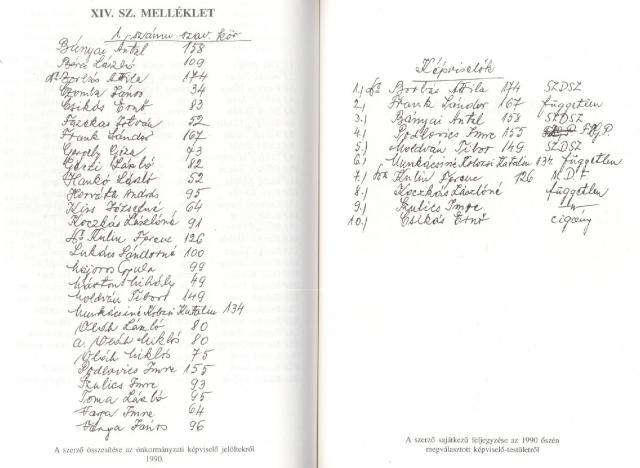 XIV. SZ. MELLÉKLET
1. számú szav. kör
Bányai Antal 158
Bére László 109
Dr Borbás Attila 174
Czomba János 34
Csikós Ernő 83
Fazekas István 52
Frank Sándor 167
Gergely Géza 73
László 82
Hankó László 52
Horváth András 95
Kiss Józsefné 64
Koczkás Lászlóné 91
Dr Kulin Ferenc 126
Lukács Sándorné 100
Majoros Gyula 99
Márton Mihály 49
Moldván Tibor 149
Munkácsiné Kobzsi Katalin 134
Oláh László 80
a. Oláh Miklós 80
Oláh Miklós 75
Podlovics Imre 155
Szulics Imre 93
Toma László 95
Varga Imre 64
Varga János 96
A szerző összesítése az önkormányzati képviselő jelöltekről
1990.
Képviselők
1.) Dr Borbás Attila 174 SZDSZ
2.) Frank Sándor 167 független
3.) Bányai Antal 158 SZDSZ
4.) Podlovics Imre 155 FKGP.
5.) Moldván Tibor 149 SZDSZ
6.) Munkácsiné Kobzsi Katalin 134 független
7.) Dr Kulin Ferenc 126 MDF
8.) Koczkás Lászlóné független
9.) Szulics Imre
10.) Csikás Ernő cigány
A szerző sajátkezű feljegyzése az 1990 őszén
megválasztott képviselő-testületről